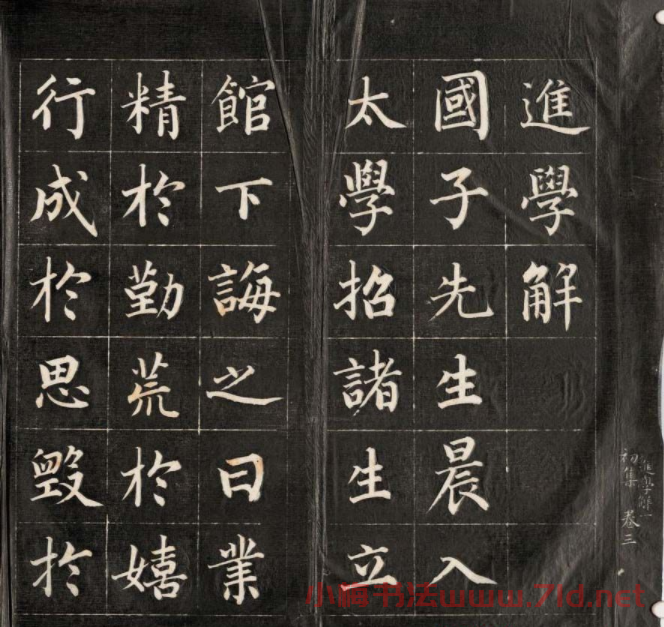 進學解
國子先生晨入
太學招諸生立
館下誨之曰業
精於勤荒於嬉
行成於思毀於
初集 卷三
進學解一
小楷书法www.7ld.net